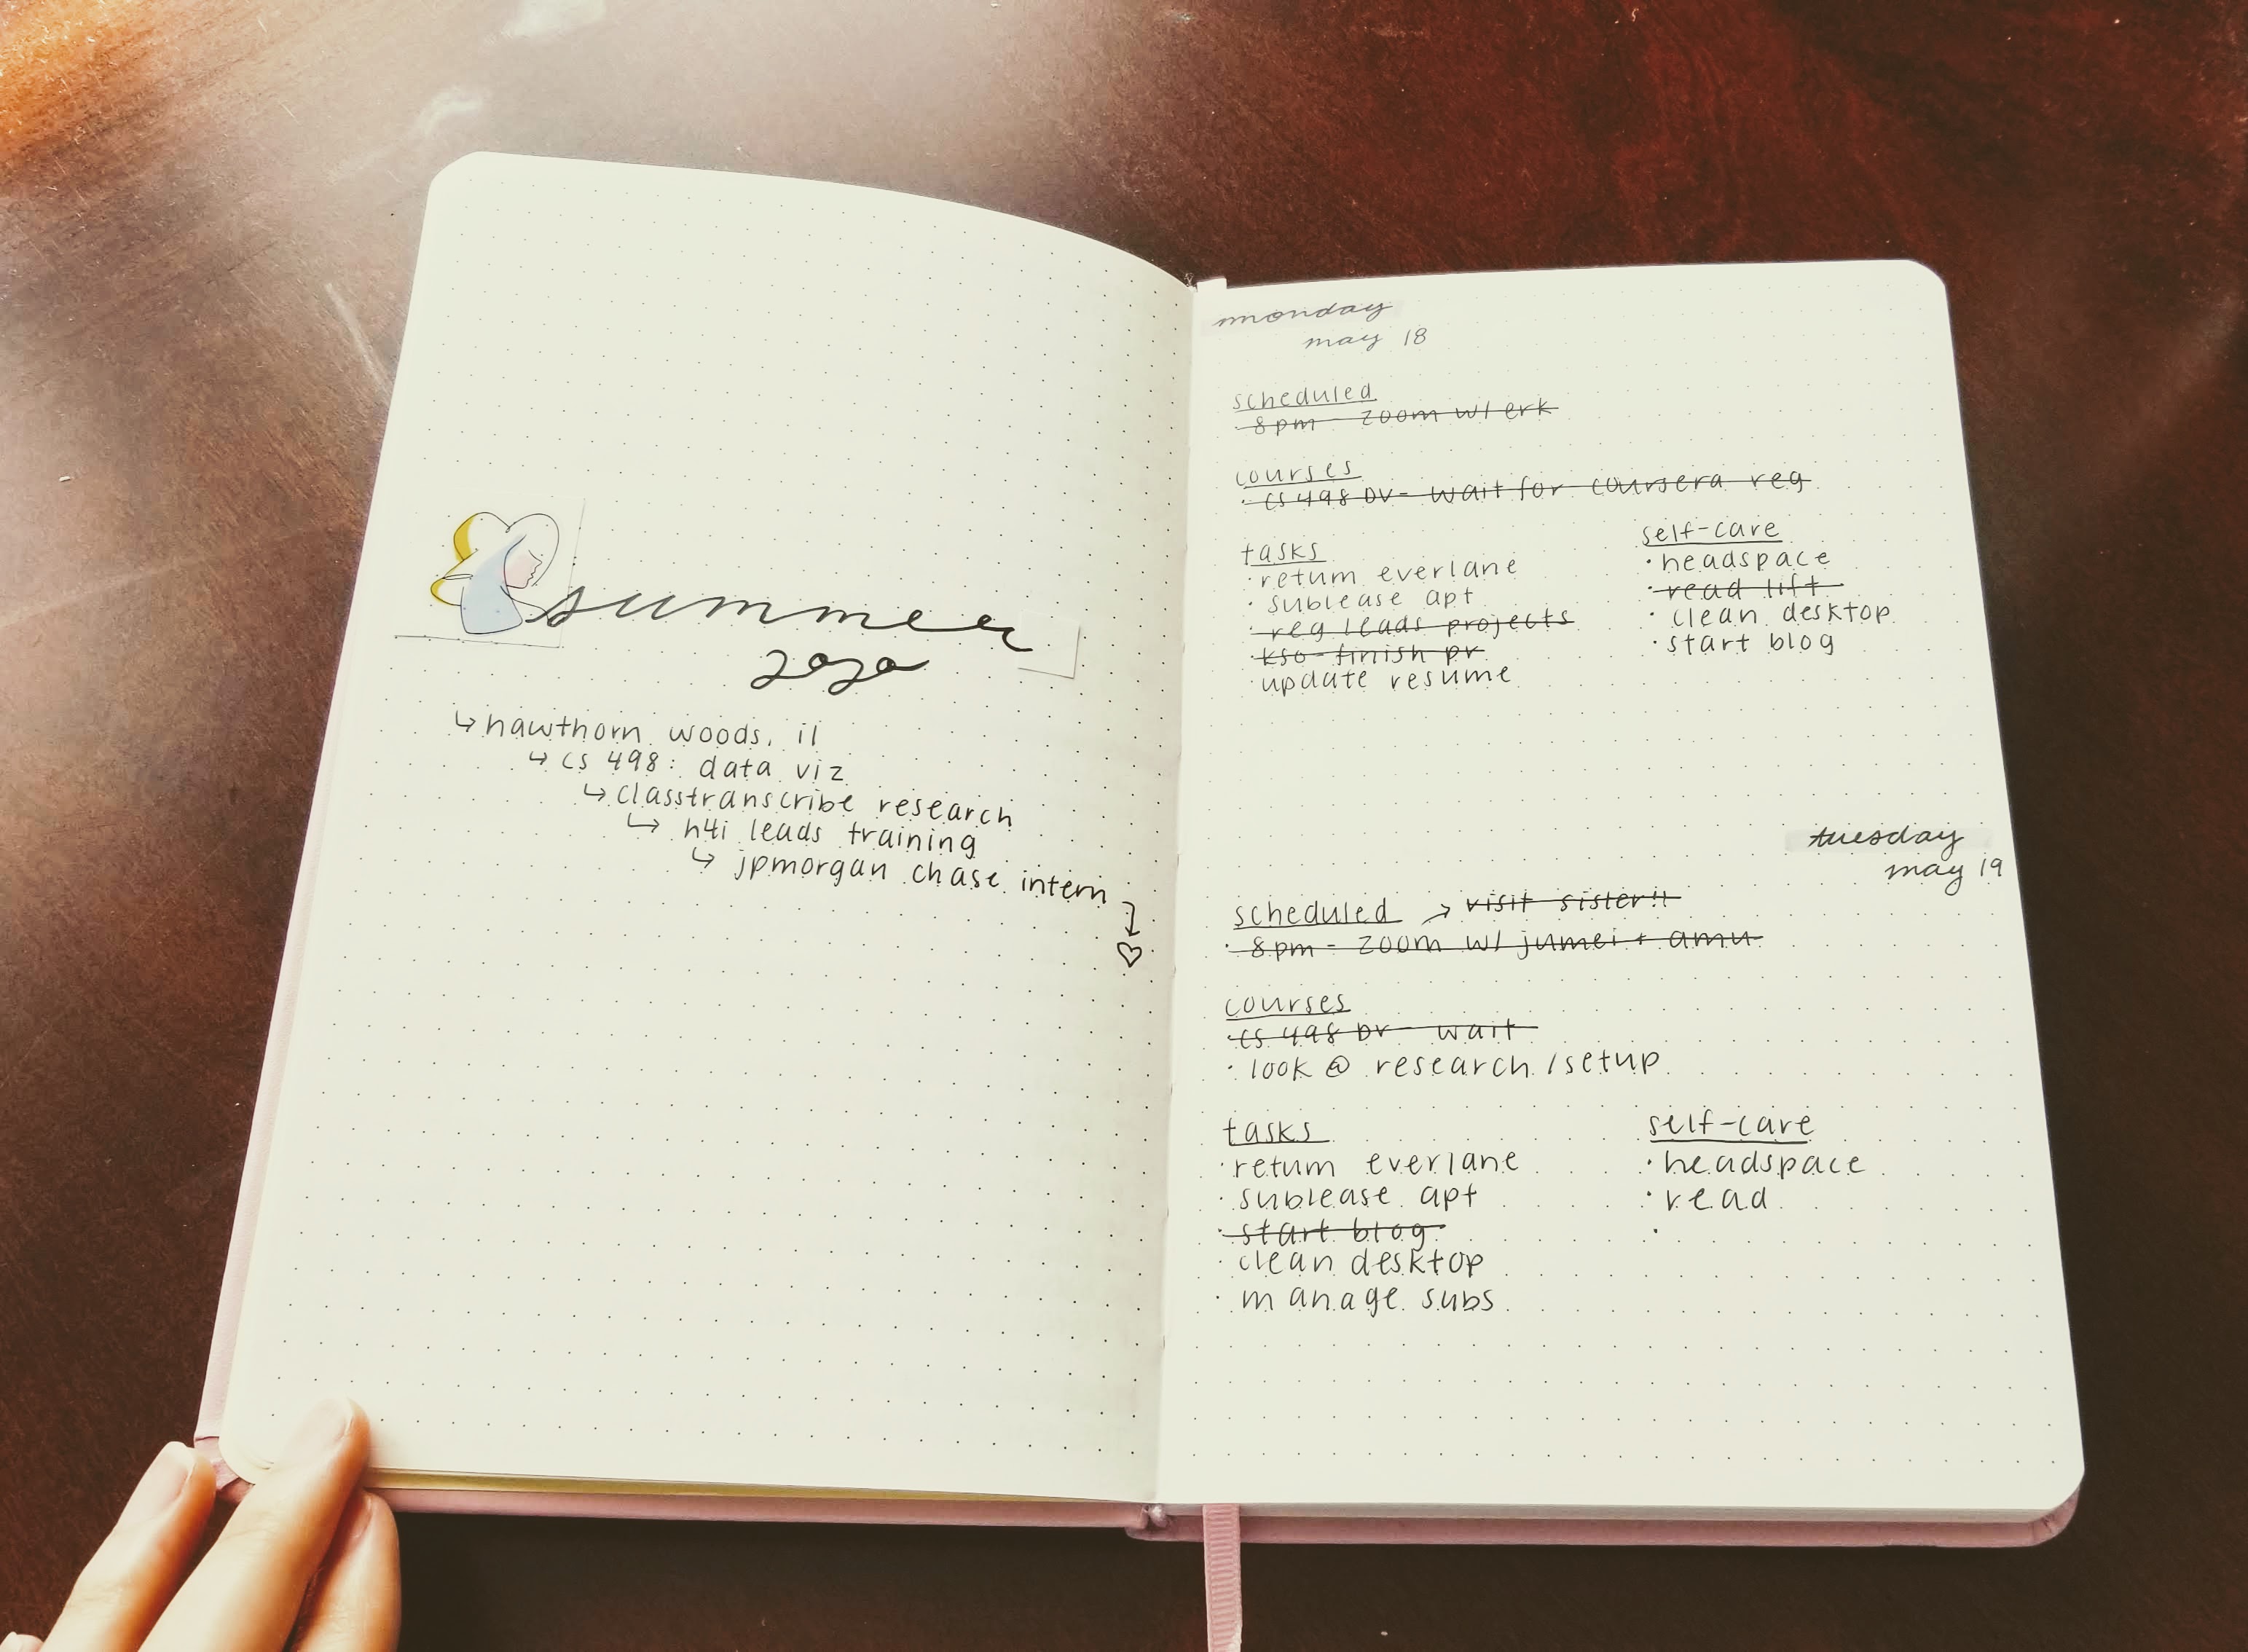 summer
2020
↳ hawthorn woods, il
↳ cs 498: data viz
↳ classtranscribe research
↳ h4i leads training
↳ jpmorgan chase intern
monday
may 18
scheduled
· 8pm - zoom w/ erk
courses
· cs 498 DV - wait for coursera reg
tasks
· return everlane
· sublease apt
· reg leads projects
· kso - finish pr
· update resume
self-care
· headspace
· read lift
· clean desktop
· start blog
tuesday
may 19
scheduled → visit sister!!
· 8pm - zoom w/ jumei + amu
courses
· cs 498 DV - wait
· look @ research/setup
tasks
· return everlane
· sublease apt
· start blog
· clean desktop
· manage subs
self-care
· headspace
· read
·